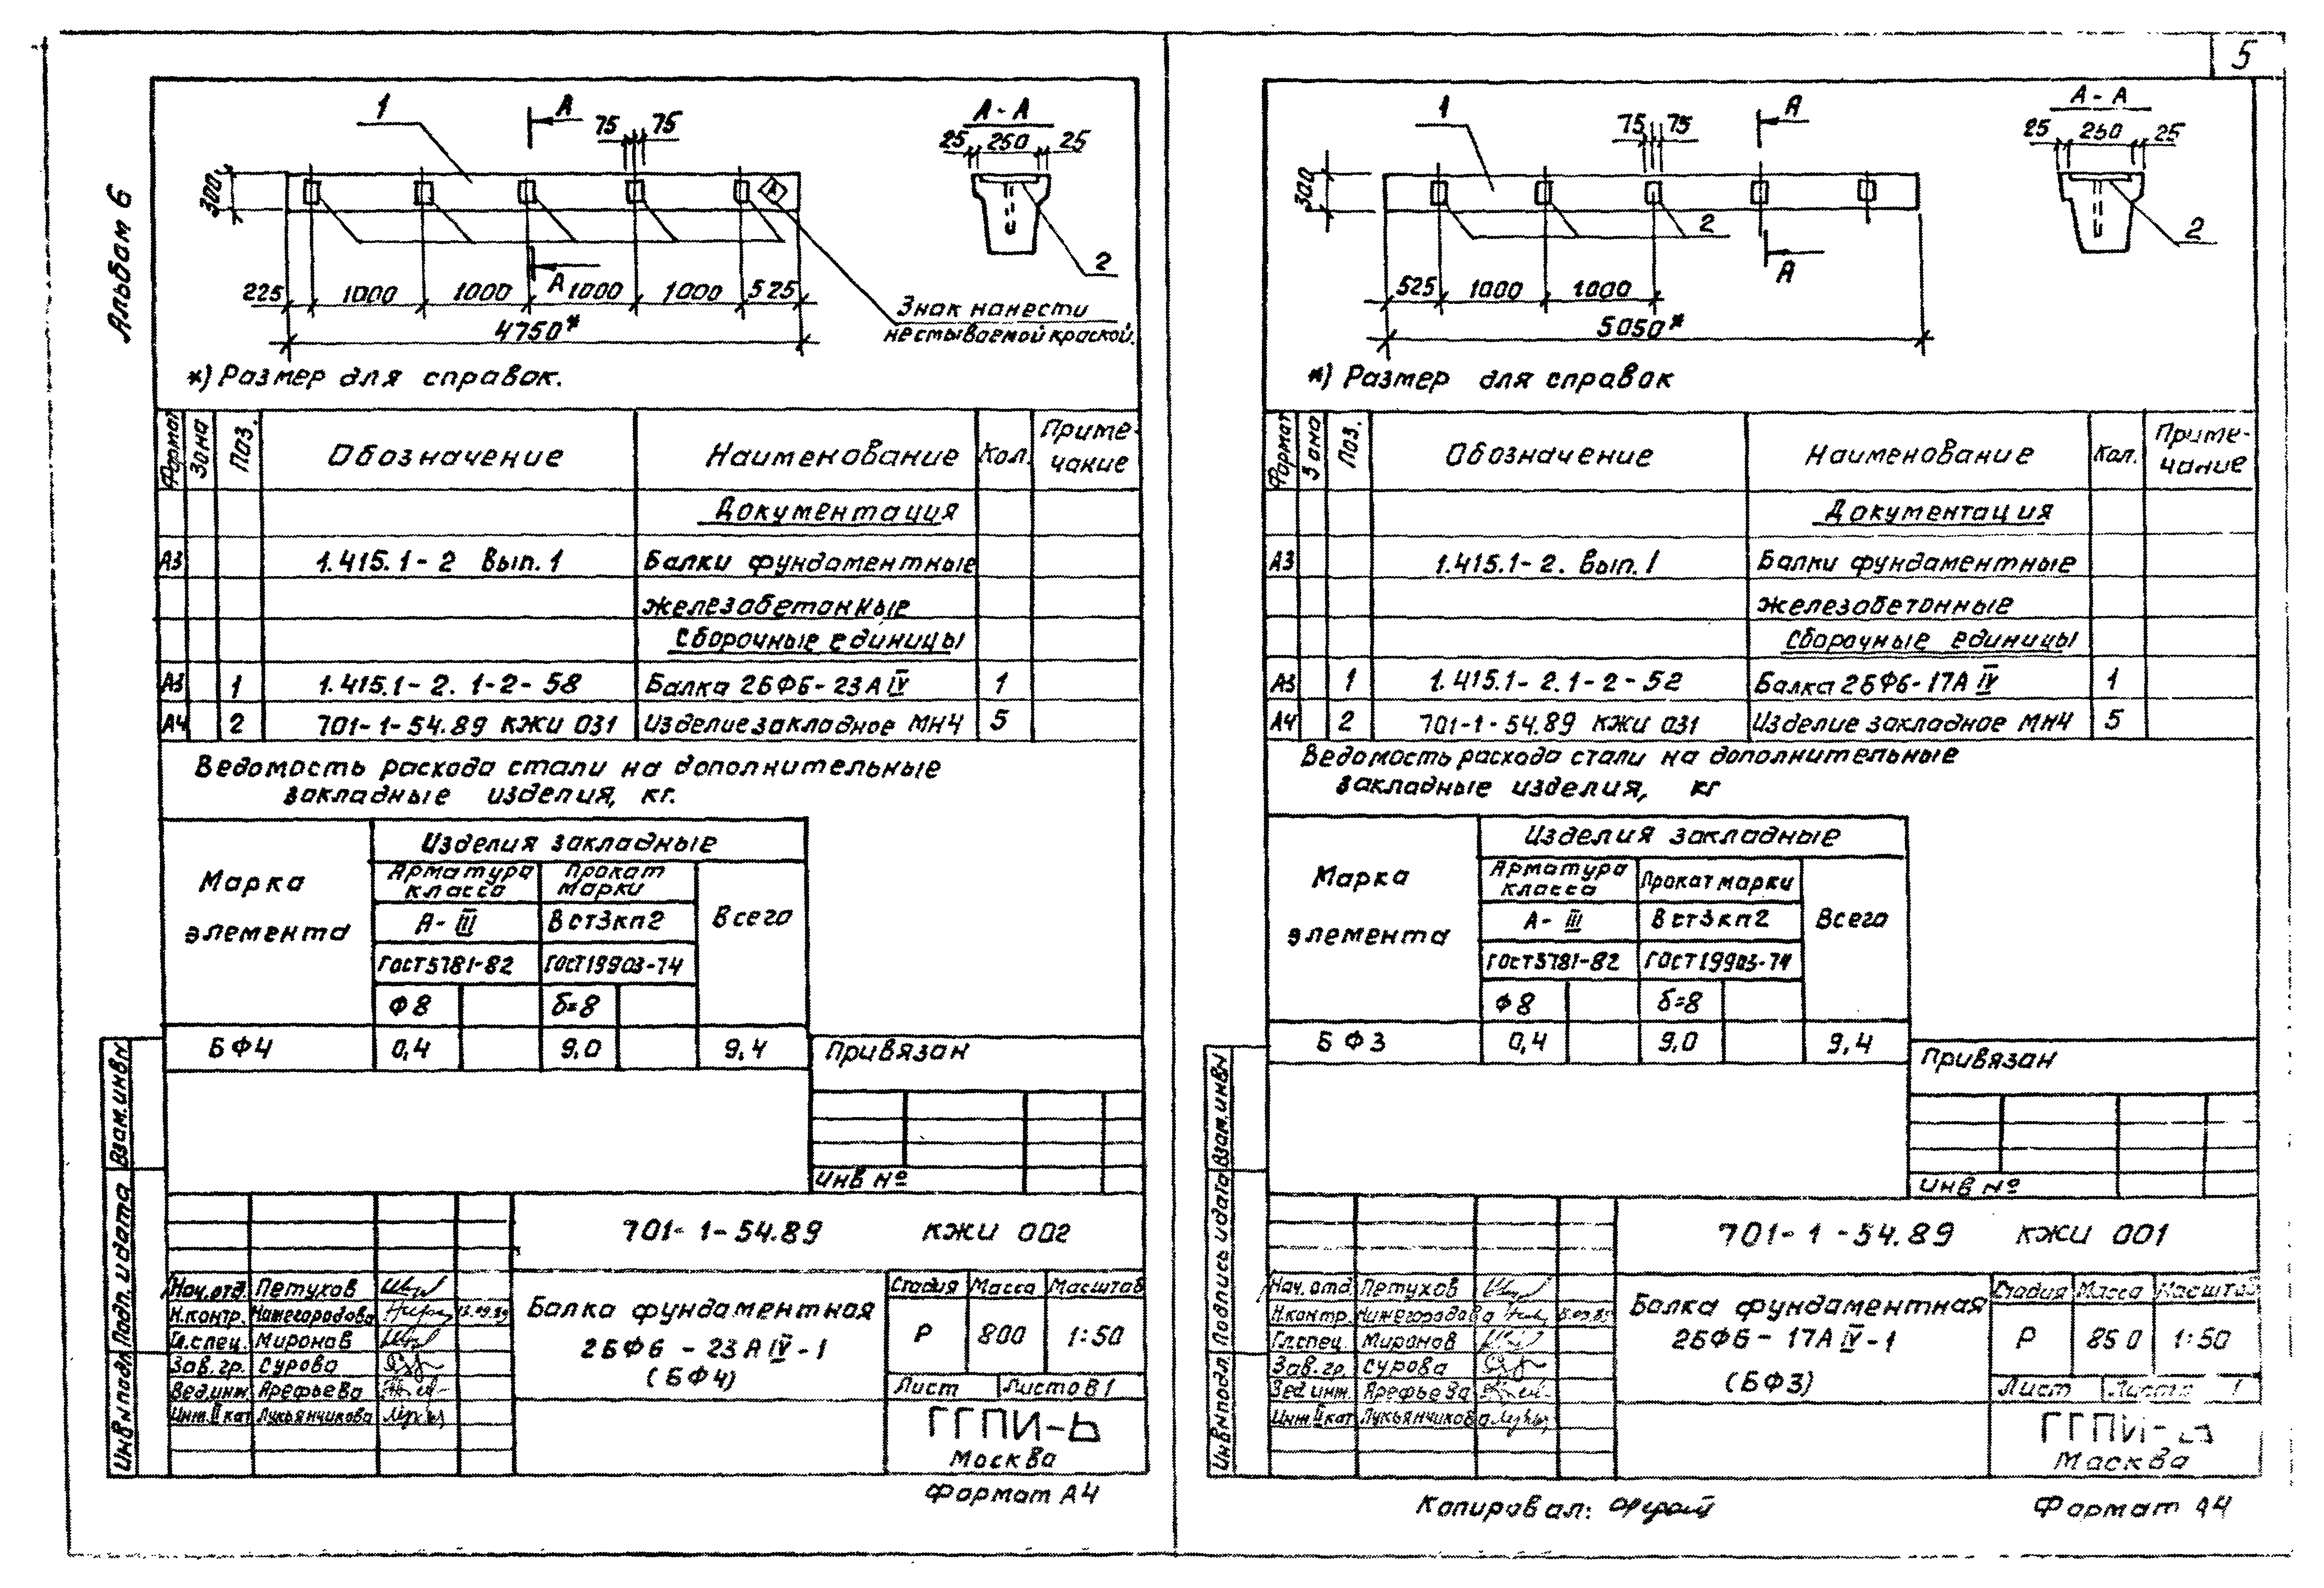 5
Альбом 6
1
А
75 75
А-А
25 250 25
300
А
2
А
225 1000 1000 1000 1000 525
4750*
Знак нанести
несмываемой краской.
*) Размер для справок.
Формат Зона Поз. Обозначение Наименование Кол. Приме-
чание
Документация
А3 1.415.1-2 Вып.1 Балки фундаментные
железобетонные
Сборочные единицы
А3 1 1.415.1-2. 1-2-58 Балка 2БФ6-23АIV 1
А4 2 701-1-54.89 КЖИ 031 Изделие закладное МН4 5
Ведомость расхода стали на дополнительные
закладные изделия, кг.
Марка
элемента
Изделия закладные
Арматура
класса
Прокат
марки
Всего
А-III ВСт3кп2
ГОСТ5781-82 ГОСТ19903-74
Ф8 δ=8
БФ4 0,4 9,0 9,4
Привязан
Инв №
Взам.инв№
Подп. и дата
Инв№подл.
701-1-54.89 КЖИ 002
Нач.отд. Петухов
Н.контр. Нижегородова 13.09.89
Гл.спец. Миронов
Зав.гр. Сурова
Вед.инж. Арефьева
Инж.II кат Лукьянчикова
Балка фундаментная
2БФ6 - 23АIV-1
(БФ4)
Стадия Масса Масштаб
Р 800 1:50
Лист Листов 1
ГГПИ-
Москва
Формат А4
1
А
75 75
А-А
25 250 25
300
2
А
2
525 1000 1000
5050*
*) Размер для справок
Формат Зона Поз. Обозначение Наименование Кол. Приме-
чание
Документация
А3 1.415.1-2. Вып.1 Балки фундаментные
железобетонные
Сборочные единицы
А3 1 1.415.1-2.1-2-52 Балка 2БФ6-17АIV 1
А4 2 701-1-54.89 КЖИ 031 Изделие закладное МН4 5
Ведомость расхода стали на дополнительные
закладные изделия, кг
Марка
элемента
Изделия закладные
Арматура
класса
Прокат марки
Всего
А-III ВСт3кп2
ГОСТ5781-82 ГОСТ19903-74
Ф8 δ=8
БФ3 0,4 9,0 9,4
Привязан
Инв №
Взам.инв№
Подпись и дата
Инв№подл.
701-1-54.89 КЖИ 001
Нач.отд Петухов
Н.контр. Нижегородова
Гл.спец. Миронов
Зав.гр. Сурова
Вед.инж. Арефьева
Инж.II кат Лукьянчикова
Балка фундаментная
2БФ6-17АIV-1
(БФ3)
Стадия Масса Масштаб
Р 850 1:50
Лист Листов 1
ГГПИ-
Москва
Копировал:
Формат А4